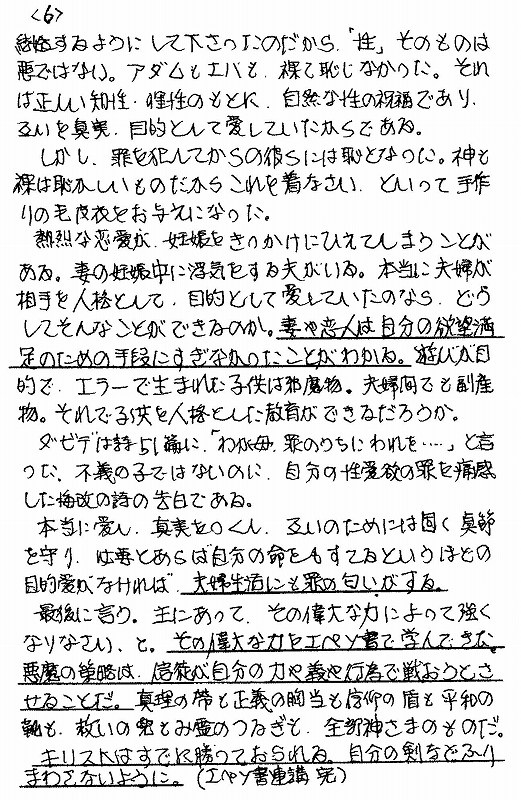 <6>
するようにして下さったのだから、「性」そのものは
悪ではない。アダムもエバも、裸で恥じなかった。それ
は正しい知性・理性のもとに、自然な性の祝福であり、
互いを真実、目的として愛していたからである。
しかし、罪を犯してからの彼らには恥となった。神も
裸は恥かしいものだからこれを着なさい、といって手作
りの毛皮衣をお与えになった。
熱烈な恋愛が、妊娠をきっかけにひえてしまうことが
ある。妻の妊娠中に浮気をする夫がいる。本当に夫婦が
相手を人格として、目的として愛していたのなら、どう
してそんなことができるのか。妻や恋人は自分の欲望満
足のための手段にすぎなかったことがわかる。遊びが目
的で、エラーで生まれた子供は邪魔物。夫婦間でも副産
物。それで子供を人格とした教育ができるだろうか。
ダビデは詩51篇に、「わが母、罪のうちにわれを……」と言
った。不義の子ではないのに、自分の性愛欲の罪を痛感
した悔改の詩の告白である。
本当に愛し、真実をつくし、互いのためには固く貞節
を守り、仕事とあらば自分の命をもすてるというほどの
目的愛がなければ、夫婦生活にも罪の匂いがする。
最後に言う。主にあって、その偉大な力によって強く
なりなさい、と。その偉大な力をエペソ書で学んできた。
悪魔の策略は、信徒が自分の力や義や行為で戦おうとさ
せることだ。真理の帯も正義の胸当も信仰の盾も平和の
靴も、救いの兜もみ霊のつるぎも、全部神さまのものだ。
キリストはすでに勝っておられる。自分の剣などふり
まわさないように。(エペソ書連講 完)